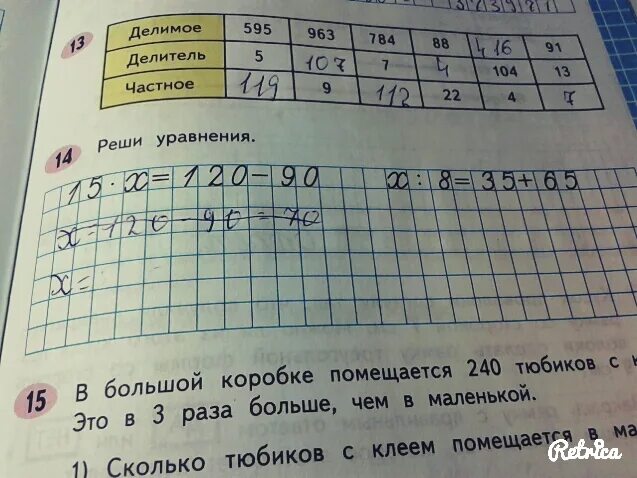 13
Делимое 595 963 784 88 416 91
Делитель 5 107 7 4 104 13
Частное 119 9 112 22 4 7
14 Реши уравнения.
15 · x = 120 - 90 x : 8 = 35 + 65
x = 120 - 90 = 70
x =
15 В большой коробке помещается 240 тюбиков с
Это в 3 раза больше, чем в маленькой.
1) Сколько тюбиков с клеем помещается в
Retrica